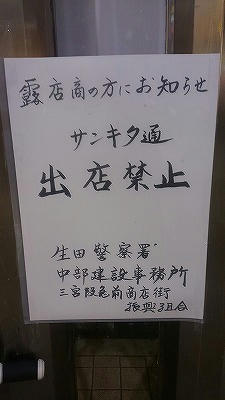 露店商の方にお知らせ
サンキタ通
出店禁止
生田警察署
中部建設事務所
三宮阪急前商店街
振興組合